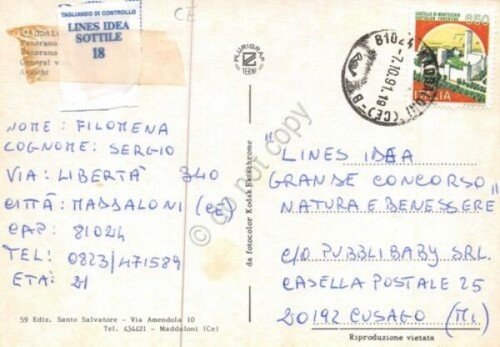 CE
TAGLIANDO DI CONTROLLO
LINES IDEA
SOTTILE
18
Panorama
Panorama
General v
Ansicht
PLURIGRAF
TERNI
650
CASTELLO DI MONTECCHIO
CASTIGLION FIORENTINO
ITALIA
81024
7.10.91.19
(CE)
NOME: FILOMENA
COGNOME: SERGIO
VIA: LIBERTÀ 340
CITTÀ: MADDALONI (CE)
CAP: 81024
TEL: 0823/471589
ETÀ: 21
59 Ediz. Santo Salvatore - Via Amendola 10
Tel. 434421 - Maddaloni (Ce)
da fotocolor Kodak Ektachrome
do not copy
"LINES IDEA
GRANDE CONCORSO
NATURA E BENESSERE
C/O PUBBLIBABY SRL.
CASELLA POSTALE 25
20192 CUSAGO (MI)
Riproduzione vietata